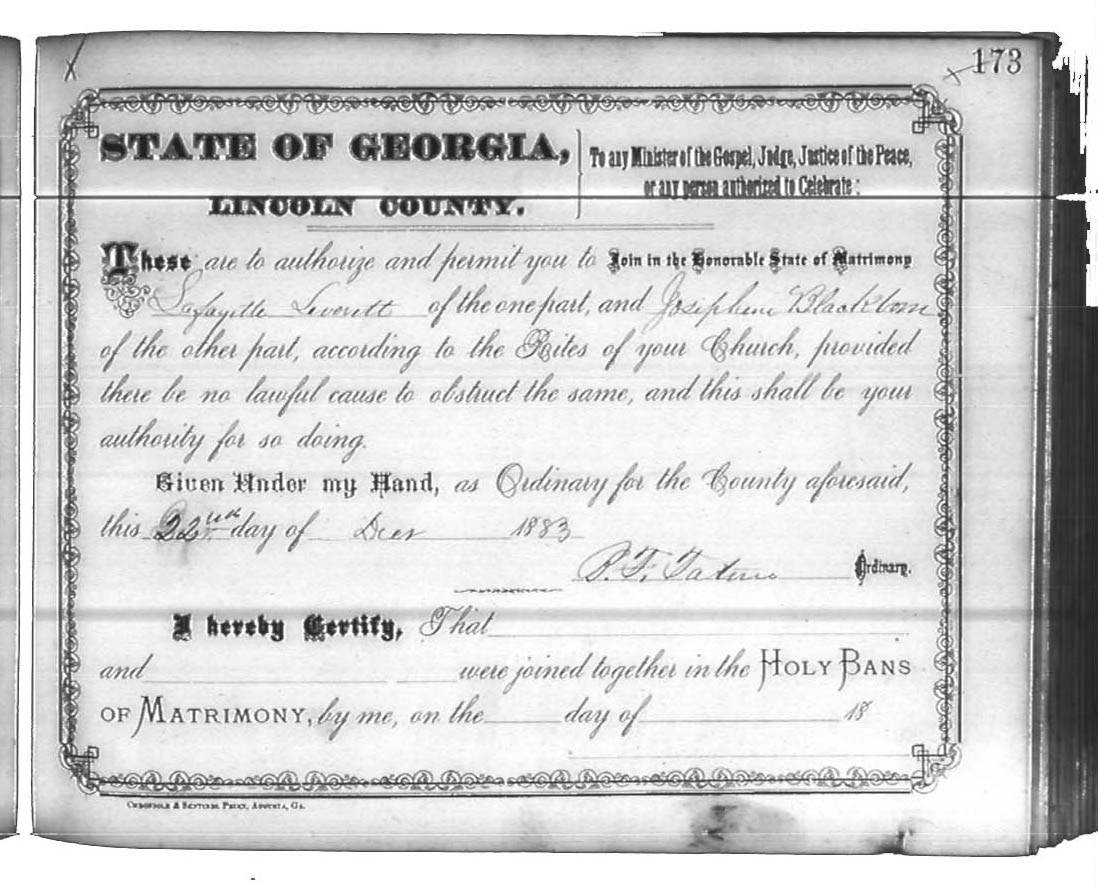 173
STATE OF GEORGIA,
LINCOLN COUNTY.
To any Minister of the Gospel, Judge, Justice of the Peace,
or any person authorized to Celebrate:
These are to authorize and permit you to Join in the Honorable State of Matrimony
Lafayette Leverett of the one part, and Josephine Blackburn
of the other part, according to the Rites of your Church, provided
there be no lawful cause to obstruct the same, and this shall be your
authority for so doing.
Given Under my Hand, as Ordinary for the County aforesaid,
this 22nd day of Decr 1883
B. F. Tatum Ordinary.
I hereby Certify, That
and were joined together in the HOLY BANS
OF MATRIMONY, by me, on the day of 18
CHRONICLE & SENTINEL PRINT, AUGUSTA, GA.